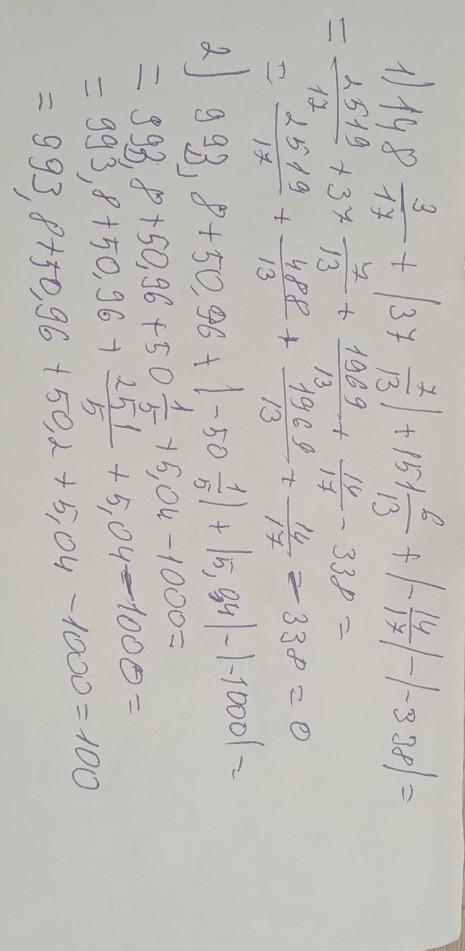 1) 148 3/17 + |37 7/13| + 151 6/13 + |-14/17| - |-338| =
= 2519/17 + 37 7/13 + 1969/13 + 14/17 - 338 =
= 2519/17 + 488/13 + 1969/13 + 14/17 - 338 = 0
2) 993,8 + 50,96 + |-50 1/5| + |5,04| - |-1000| =
= 993,8 + 50,96 + 50 1/5 + 5,04 - 1000 =
= 993,8 + 50,96 + 251/5 + 5,04 - 1000 =
= 993,8 + 50,96 + 50,2 + 5,04 - 1000 = 100